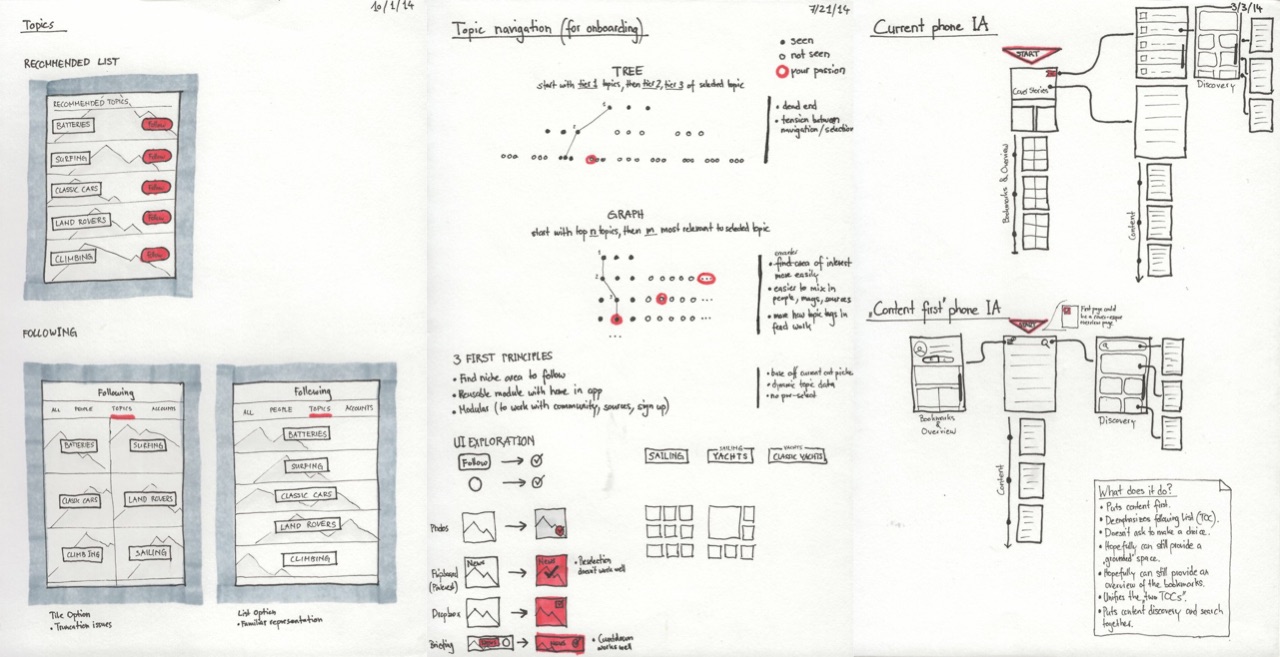 10/1/14
Topics
RECOMMENDED LIST
RECOMMENDED TOPICS
BATTERIES
Follow
SURFING
Follow
CLASSIC CARS
Follow
LAND ROVERS
Follow
CLIMBING
Follow
FOLLOWING
Following
ALL PEOPLE TOPICS ACCOUNTS
BATTERIES SURFING
CLASSIC CARS LAND ROVERS
CLIMBING SAILING
Tile Option
• Truncation issues
Following
ALL PEOPLE TOPICS ACCOUNTS
BATTERIES
SURFING
CLASSIC CARS
LAND ROVERS
CLIMBING
List Option
• Familiar representation
7/21/14
Topic navigation (for onboarding)
• seen
○ not seen
your passion
TREE
start with tier 1 topics, then tier 2, tier 3 of selected topic
• dead end
• tension between
navigation/selection
GRAPH
start with top n topics, then m most relevant to selected topic
• find area of interest
more easily
• easier to mix in
people, mags, sources
• more how topic tags in
feed work
3 FIRST PRINCIPLES
• Find niche area to follow
• Reusable module with home in app
• Modular (to work with community, sources, sign up)
• base off current
• dynamic topic data
• no pre-select
UI EXPLORATION
Follow
SAILING
SAILING
YACHTS
YACHTS
CLASSIC YACHTS
Photos
Flipboard
(Pinterest)
News
News
doesn't work well
Dropbox
Briefing
NEWS
• Countdown
works well
3/3/14
Current phone IA
START
Cover Stories
Discovery
Bookmarks & Overview
Content
"Content first" phone IA
START
First page could
be a cover-esque
Bookmarks
&
Overview
Discovery
Content
What does it do?
• Puts content first.
• Deemphasizes following list (TOC).
• Doesn't ask to make a choice.
• Hopefully can still provide a
"grounded" space.
• Hopefully can still provide an
overview of the bookmarks.
• Unifies the "two TOCs".
• Puts content discovery and search
together.